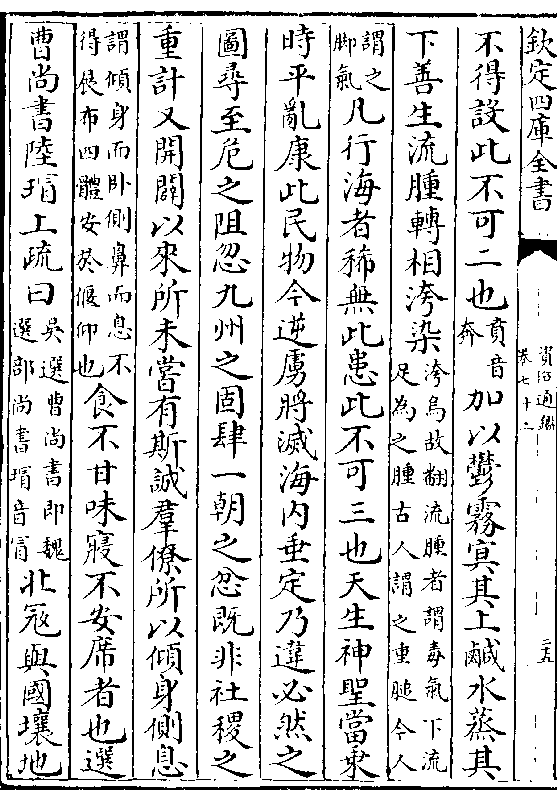 欽定四庫全書
資治通鑑
卷七十二
二五
不得設此不可二也賁音奔加以鬱霧冥其上鹹水蒸其
下善生流腫轉相洿染洿烏故翻流腫者謂毒氣下流足為之腫古人謂之重膇今人
謂之脚氣凡行海者稀無此患此不可三也天生神聖當乘
時平亂康此民物今逆虜將滅海内垂定乃違必然之
圖尋至危之阻忽九州之固肆一朝之忿既非社稷之
重計又開闢以來所未嘗有斯誠羣僚所以傾身側息
謂傾身而卧側鼻而息不得展布四體安於偃仰也食不甘味寢不安席者也選
曹尚書陸瑁上疏曰吳選曹尚書即魏選部尚書瑁音冒北冦與國壤地